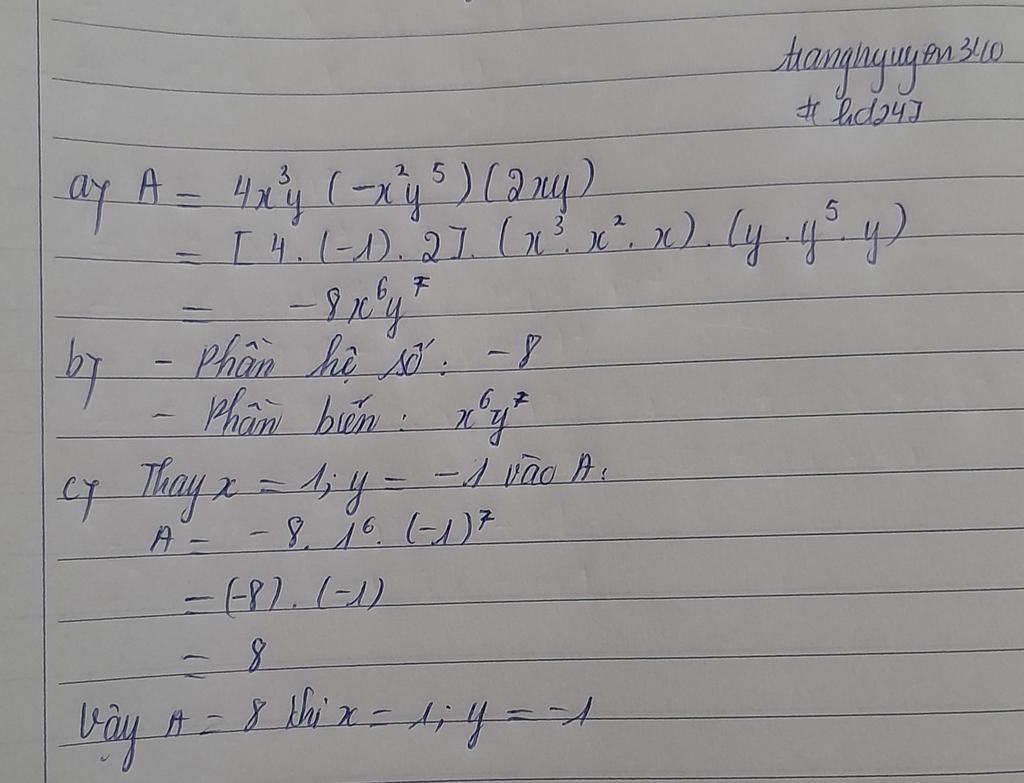 trangnguyen340
# hd247
a, A = 4x³y (-x²y⁵)(2xy)
= [4.(-1).2].(x³.x².x).(y.y⁵.y)
= -8x⁶y⁷
b, - Phần hệ số: -8
- Phần biến: x⁶y⁷
c, Thay x = 1; y = -1 vào A:
A = -8.1⁶.(-1)⁷
= (-8).(-1)
= 8
Vậy A = 8 khi x = 1; y = -1